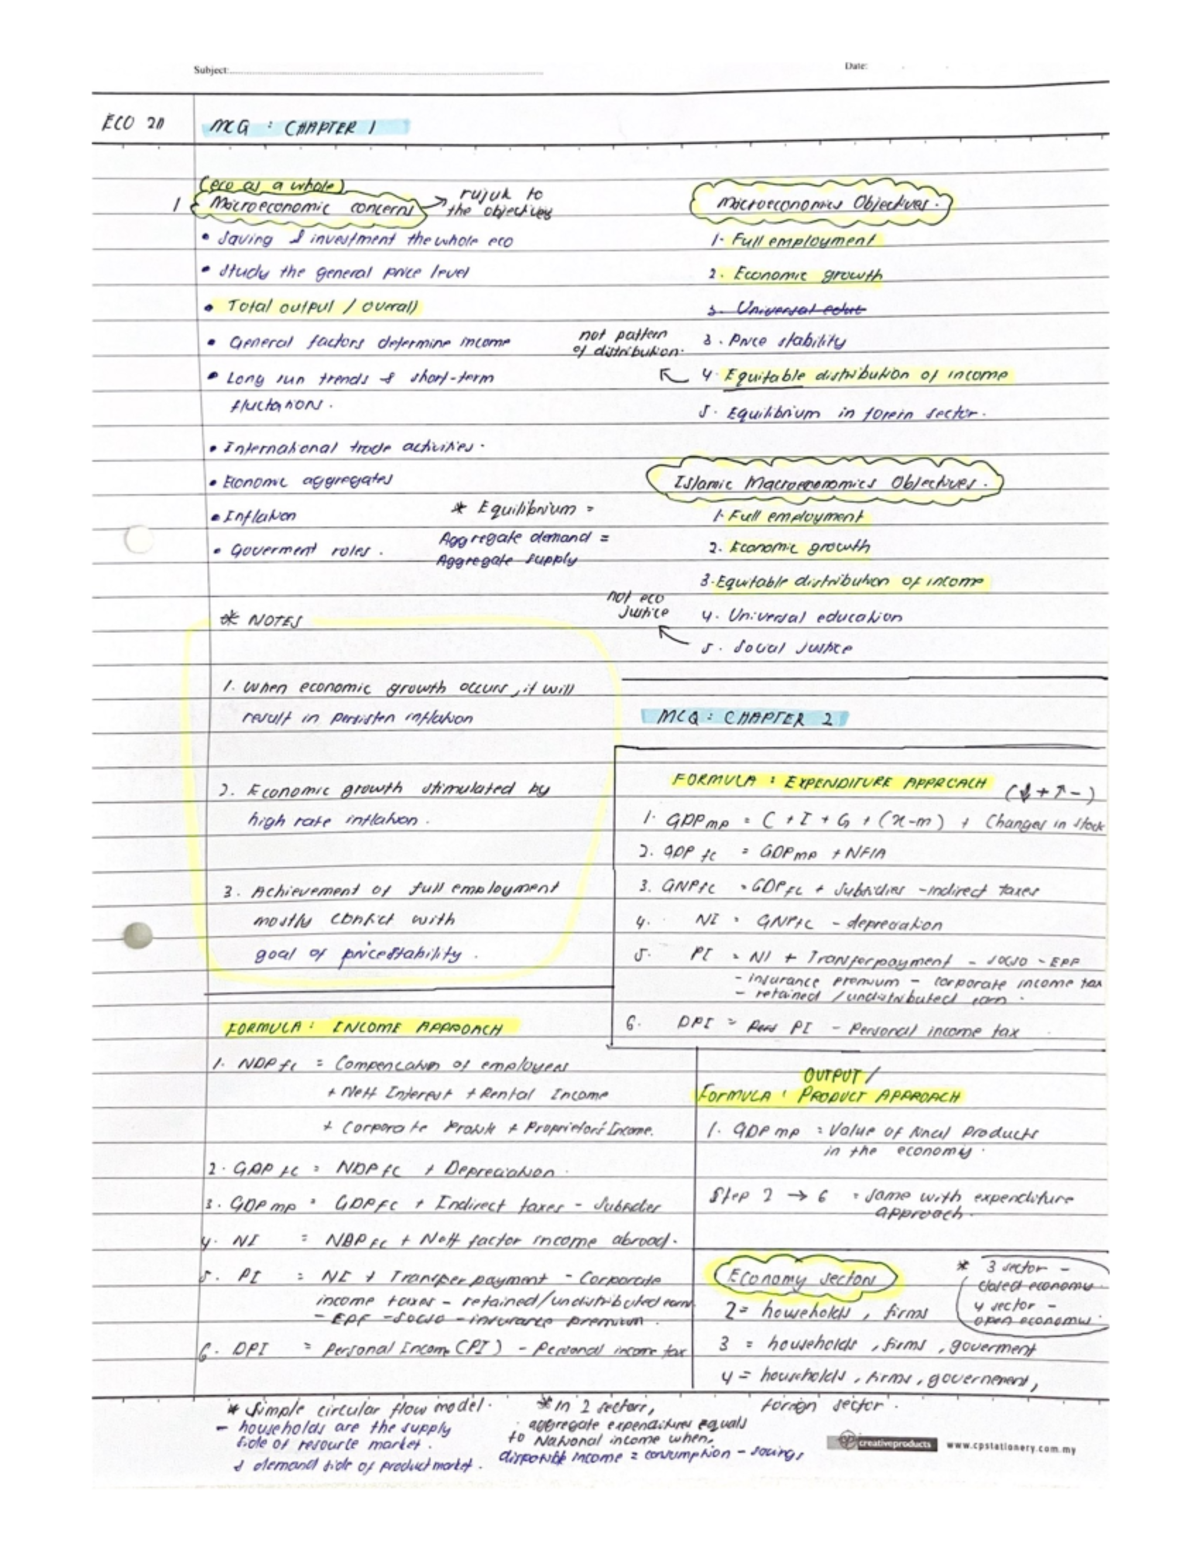 Subject:
Date:
ECO 211
MCQ : CHAPTER 1
(eco as a whole)
1 Macroeconomic concerns → rujuk to the objectives
• Saving & investment the whole eco
• Study the general price level
• Total output / overall
• General factors determine income
• Long run trends & short-term
fluctations.
• International trade activities.
• Economic aggregates
• Inflation
• Goverment roles.
* Equilibrium =
Aggregate demand =
Aggregate supply
Macroeconomics Objectives.
1. Full employment
2. Economic growth
3. Universal educ
3. Price stability
not pattern
of distribution.
4. Equitable distribution of income
5. Equilibrium in forein sector.
Islamic Macroeconomics Objectives.
1. Full employment
2. Economic growth
3. Equitable distribution of income
not eco
justice
4. Universal education
5. Social justice
* NOTES
1. When economic growth occurs, it will
result in persisten inflation
2. Economic growth stimulated by
high rate inflation.
3. Achievement of full employment
mostly conflict with
goal of price stability.
MCQ : CHAPTER 2
FORMULA : EXPENDITURE APPROACH
(↓ + ↑ -)
1. GDP mp = C + I + G + (x-m) + Changes in stock
2. GDP fc = GDP mp + NFIA
3. GNP fc = GDP fc + Subsidies - indirect taxes
4. NI = GNP fc - depreciation
5. PI = NI + Transfer payment - SOCSO - EPF
- insurance premium - corporate income tax
- retained / undistributed earn.
6. DPI = PI - Personal income tax
FORMULA : INCOME APPROACH
1. NDP fc = Compencation of employees
+ Nett Interest + Rental Income
+ Corporate Profit + Proprietors' Income.
2. GDP fc = NDP fc + Depreciation.
3. GDP mp = GDP fc + Indirect taxes - Subsidies
4. NI = NDP fc + Nett factor income abroad.
5. PI = NI + Transfer payment - Corporate
income taxes - retained/undistributed earn
- EPF - SOCSO - insurance premium.
6. DPI = Personal Incom (PI) - Personal income tax
OUTPUT /
FORMULA : PRODUCT APPROACH
1. GDP mp = Value of final products
in the economy.
Step 2 → 6 = same with expenditure
approach.
Economy sectors
* 3 sector -
closed economy
4 sector -
open economy.
2 = households, firms
3 = households, firms, goverment
4 = households, firms, governement,
foreign sector.
* Simple circular flow model.
- households are the supply
side of resource market.
& demand side of product market.
* In 2 sectors,
aggregate expenditures equals
to National income when,
disposible income = consumption - savings
creativeproducts
www.cpstationery.com.my